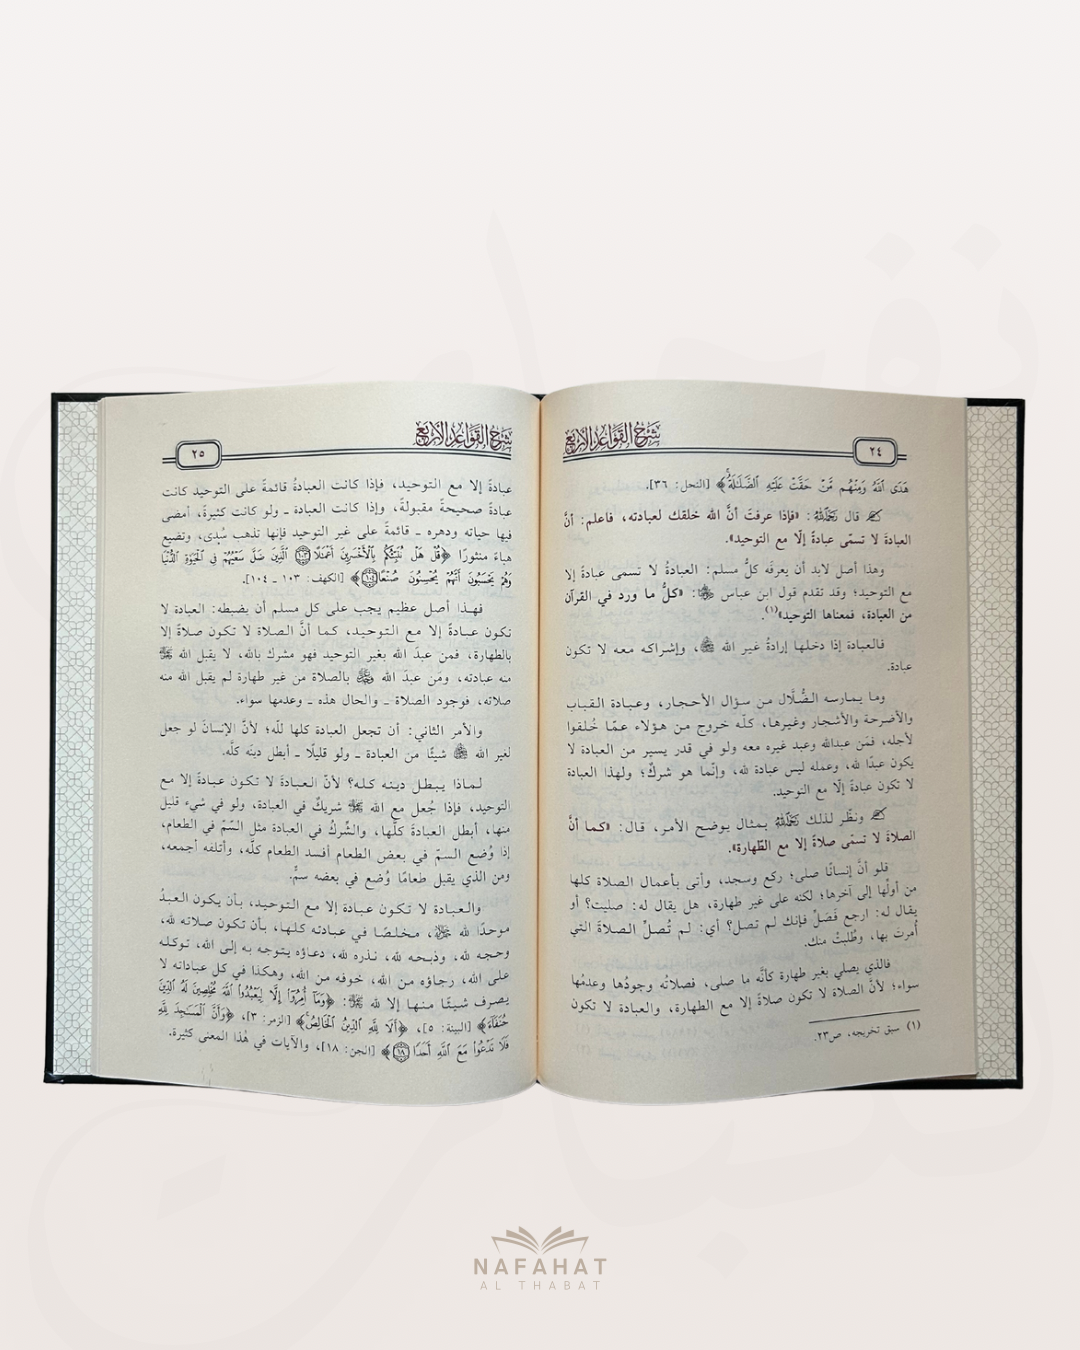 شرح القواعد الأربع
٢٤
هَدَى ٱللَّهُ وَمِنْهُم مَّنْ حَقَّتْ عَلَيْهِ ٱلضَّلَـٰلَةُ﴾ [النحل: ٣٦].
قال رَحِمَهُ اللَّهُ: «فإذا عرفتَ أنَّ الله خلقك لعبادته، فاعلم: أنَّ
العبادةَ لا تسمّى عبادةً إلّا مع التوحيد».
وهذا أصل لابد أن يعرفَه كلُّ مسلم: العبادةُ لا تسمى عبادةً إلا
مع التوحيد؛ وقد تقدم قول ابن عباس: «كلُّ ما ورد في القرآن
من العبادة، فمعناها التوحيد»(١).
فالعبادة إذا دخلها إرادةُ غير الله ﷻ، وإشراكه معه لا تكون
عبادة.
وما يمارسه الضُّلَّال من سؤال الأحجار، وعبادة القباب
والأضرحة والأشجار وغيرها، كلّه خروج من هؤلاء عمّا خُلقوا
لأجله، فمَن عبدالله وعبد غيره معه ولو في قدر يسير من العبادة لا
يكون عبدًا لله، وعمله ليس عبادة لله، وإنّما هو شركٌ؛ ولهذا العبادة
لا تكون عبادةً إلّا مع التوحيد.
ونظّر لذلك رَحِمَهُ اللَّهُ بمثال يوضح الأمر، قال: «كما أنَّ
الصلاةَ لا تسمّى صلاةً إلا مع الطّهارة».
فلو أنَّ إنسانًا صلى؛ ركع وسجد، وأتى بأعمال الصلاة كلها
من أولها إلى آخرها؛ لكنه على غير طهارة، هل يقال له: صليت؟ أو
يقال له: ارجع فَصَلِّ فإنك لم تصل؟ أي: لم تُصلِّ الصلاةَ التي
أُمرتَ بها، وطُلبتْ منك.
فالذي يصلي بغير طهارة كأنَّه ما صلى، فصلاتُه وجودُها وعدمُها
سواء؛ لأنَّ الصلاة لا تكون صلاةً إلا مع الطهارة، والعبادة لا تكون
(١) سبق تخريجه، ص٢٣.
شرح القواعد الأربع
٢٥
عبادةً إلا مع التوحيد، فإذا كانت العبادةُ قائمةً على التوحيد كانت
عبادةً صحيحةً مقبولةً، وإذا كانت العبادة ـ ولو كانت كثيرةً، أمضى
فيها حياته ودهره ـ قائمةً على غير التوحيد فإنها تذهب سُدًى، وتضيع
هباءً منثورًا ﴿قُلْ هَلْ نُنَبِّئُكُم بِٱلْأَخْسَرِينَ أَعْمَـٰلًا ١٠٣ ٱلَّذِينَ ضَلَّ سَعْيُهُمْ فِى ٱلْحَيَوٰةِ ٱلدُّنْيَا
وَهُمْ يَحْسَبُونَ أَنَّهُمْ يُحْسِنُونَ صُنْعًا ١٠٤﴾ [الكهف: ١٠٣ ـ ١٠٤].
فهذا أصل عظيم يجب على كل مسلم أن يضبطه: العبادة لا
تكون عبادةً إلا مع التوحيد، كما أنَّ الصلاة لا تكون صلاةً إلا
بالطهارة، فمن عبدَ الله بغير التوحيد فهو مشرك بالله، لا يقبل الله ﷻ
منه عبادته، ومَن عبدَ الله ﷻ بالصلاة من غير طهارة لم يقبل الله منه
صلاته، فوجود الصلاة ـ والحال هذه ـ وعدمها سواء.
والأمر الثاني: أن تجعل العبادة كلها للَّه؛ لأنَّ الإنسان لو جعل
لغير الله ﷻ شيئًا من العبادة ـ ولو قليلًا ـ أبطل دينَه كلَّه.
لماذا يبطل دينه كله؟ لأنّ العبادة لا تكون عبادةً إلا مع
التوحيد، فإذا جُعل مع الله ﷻ شريكٌ في العبادة، ولو في شيء قليل
منها، أبطل العبادة كلَّها، والشِّركُ في العبادة مثل السّمّ في الطعام،
إذا وُضع السمّ في بعض الطعام أفسد الطعام كلَّه، وأتلفه أجمعه،
ومن الذي يقبل طعامًا وُضع في بعضه سمٌّ.
والعبادة لا تكون عبادة إلا مع التوحيد، بأن يكون العبدُ
موحدًا لله، مخلصًا في عبادته كلها، بأن تكون صلاته لله،
وحجه لله، وذبحه لله، نذره لله، دعاؤه يتوجه به إلى الله، توكله
على الله، رجاؤه من الله، خوفه من الله، وهكذا في كل عباداته لا
يصرف شيئًا منها إلا لله: ﴿وَمَآ أُمِرُوٓا۟ إِلَّا لِيَعْبُدُوا۟ ٱللَّهَ مُخْلِصِينَ لَهُ ٱلدِّينَ
حُنَفَآءَ﴾ [البينة: ٥]، ﴿أَلَا لِلَّهِ ٱلدِّينُ ٱلْخَالِصُ﴾ [الزمر: ٣]، ﴿وَأَنَّ ٱلْمَسَـٰجِدَ لِلَّهِ
فَلَا تَدْعُوا۟ مَعَ ٱللَّهِ أَحَدًا ١٨﴾ [الجن: ١٨]، والآيات في هٰذا المعنى كثيرة.
NAFAHAT
AL THABAT